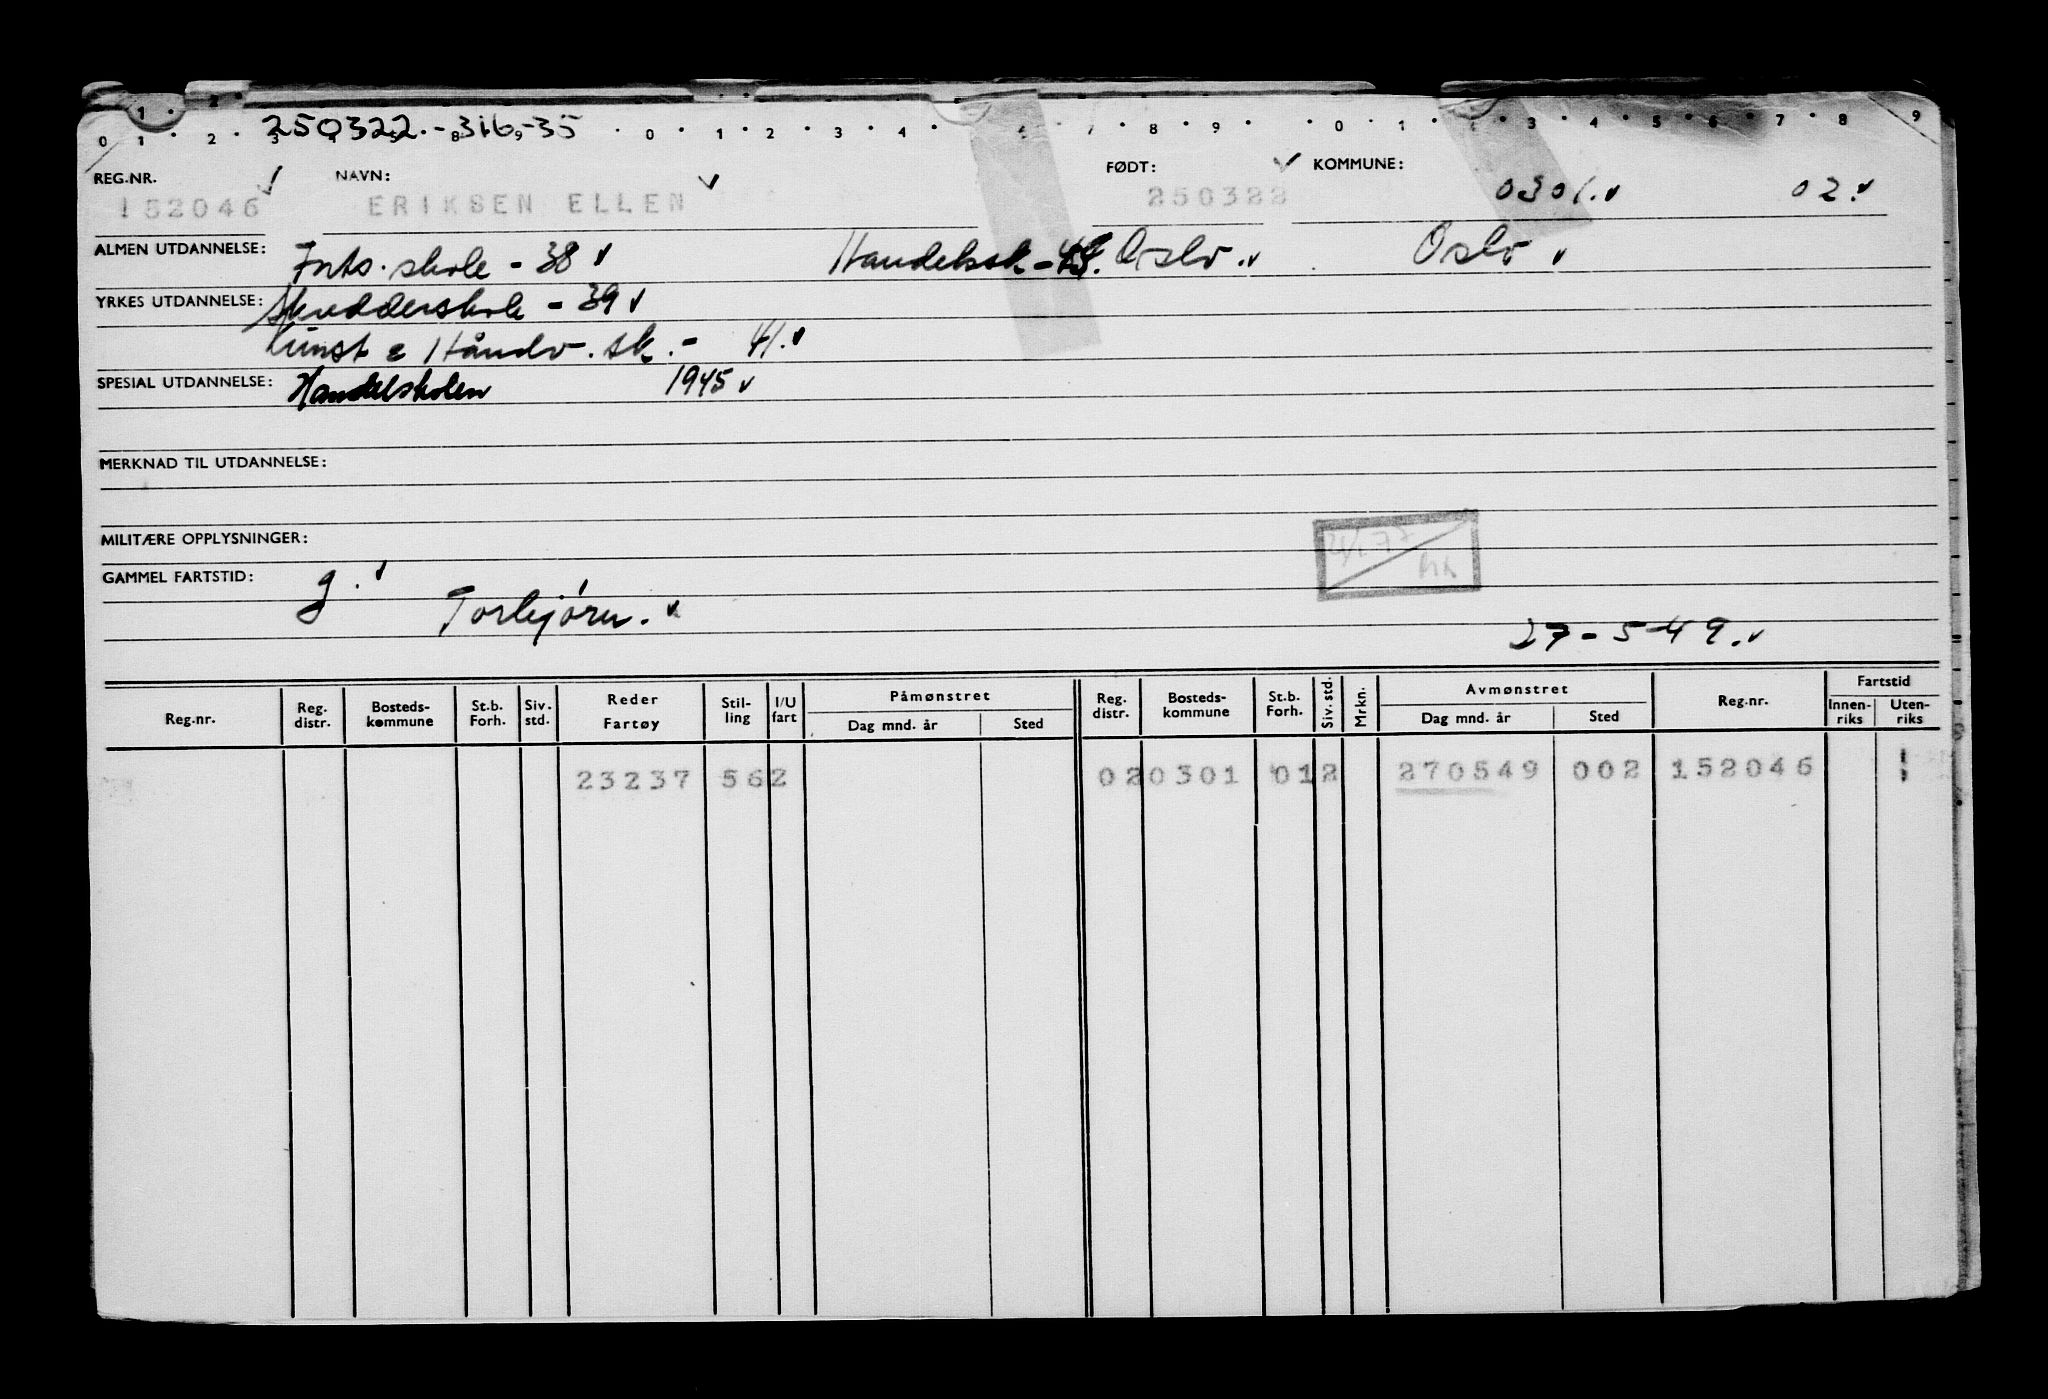 250322.-316-35
0 1 2 3 8 9 0 1 2 3 4 6 7 8 9 0 1 2 3 4 5 6 7 8 9
REG.NR. NAVN: FØDT: KOMMUNE:
152046 ERIKSEN ELLEN 250322 0301. 02.
ALMEN UTDANNELSE: Forts. skole - 38 Handelssk - Oslo. Oslo
YRKES UTDANNELSE: - 39
Kunst & Håndv. sk. - 41.
SPESIAL UTDANNELSE: Handelskolen 1945
MERKNAD TIL UTDANNELSE:
MILITÆRE OPPLYSNINGER:
GAMMEL FARTSTID: g.
Torbjörn.
27-5-49.
Reg.nr. Reg. distr. Bosteds-kommune St.b. Forh. Siv. std. Reder Fartøy Stil-ling I/U fart Påmønstret Dag mnd. år Sted Reg. distr. Bosteds-kommune St.b. Forh. Siv. std. Mrkn. Avmønstret Dag mnd. år Sted Reg.nr. Fartstid Innen-riks Uten-riks
23237 562 020301 012 270549 002 152046